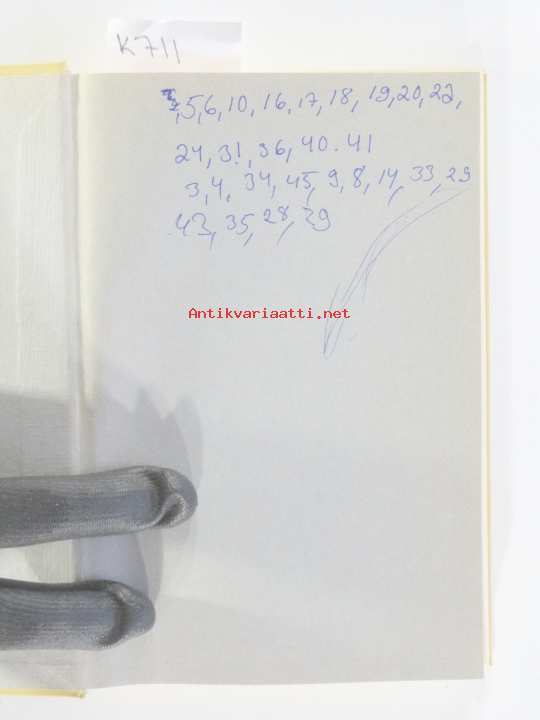 K711
2,5,6,10,16,17,18,19,20,22,
24,31,36,40.41
3,4,34,45,9,8,14,33,29
43,35,28,39
Antikvariaatti.net